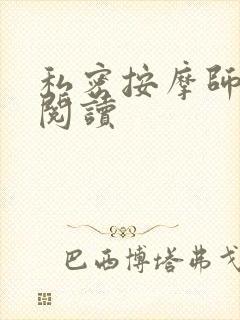 私密按摩師
閱讀
巴西博塔弗戈